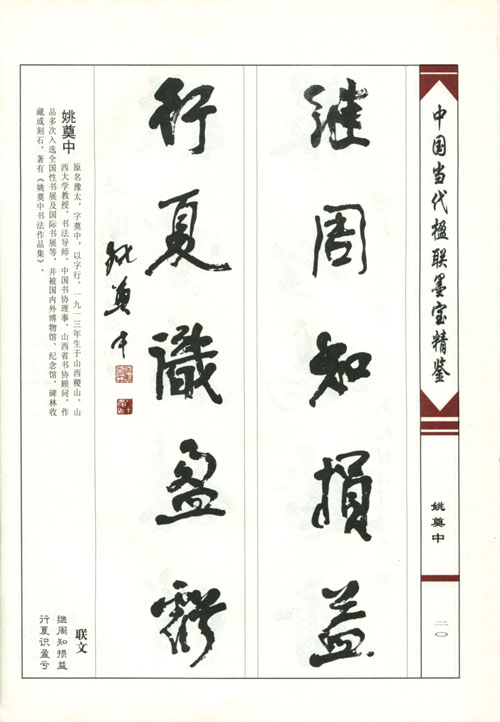 中国当代楹联墨宝精鉴
姚奠中
二〇
继周知损益
行夏識盈虧
姚奠中
姚奠中
原名豫太，字奠中，以字行。一九一三年生于山西稷山，山
西大学教授、书法导师，中国书协理事、山西省书协顾问，作
品多次入选全国性书展及国际书展等，并被国内外博物馆、纪念馆、碑林收
藏或刻石。著有《姚奠中书法作品集》。
联文
继周知损益
行夏识盈亏